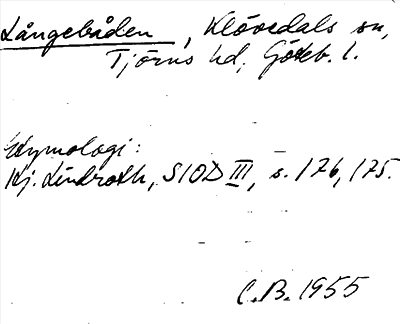 Långebåden, Klövedals sn,
Tjörns hd, Göteb. l.
Etymologi:
Hj. Lindroth, SIOD III, s. 176, 175.
C.B. 1955